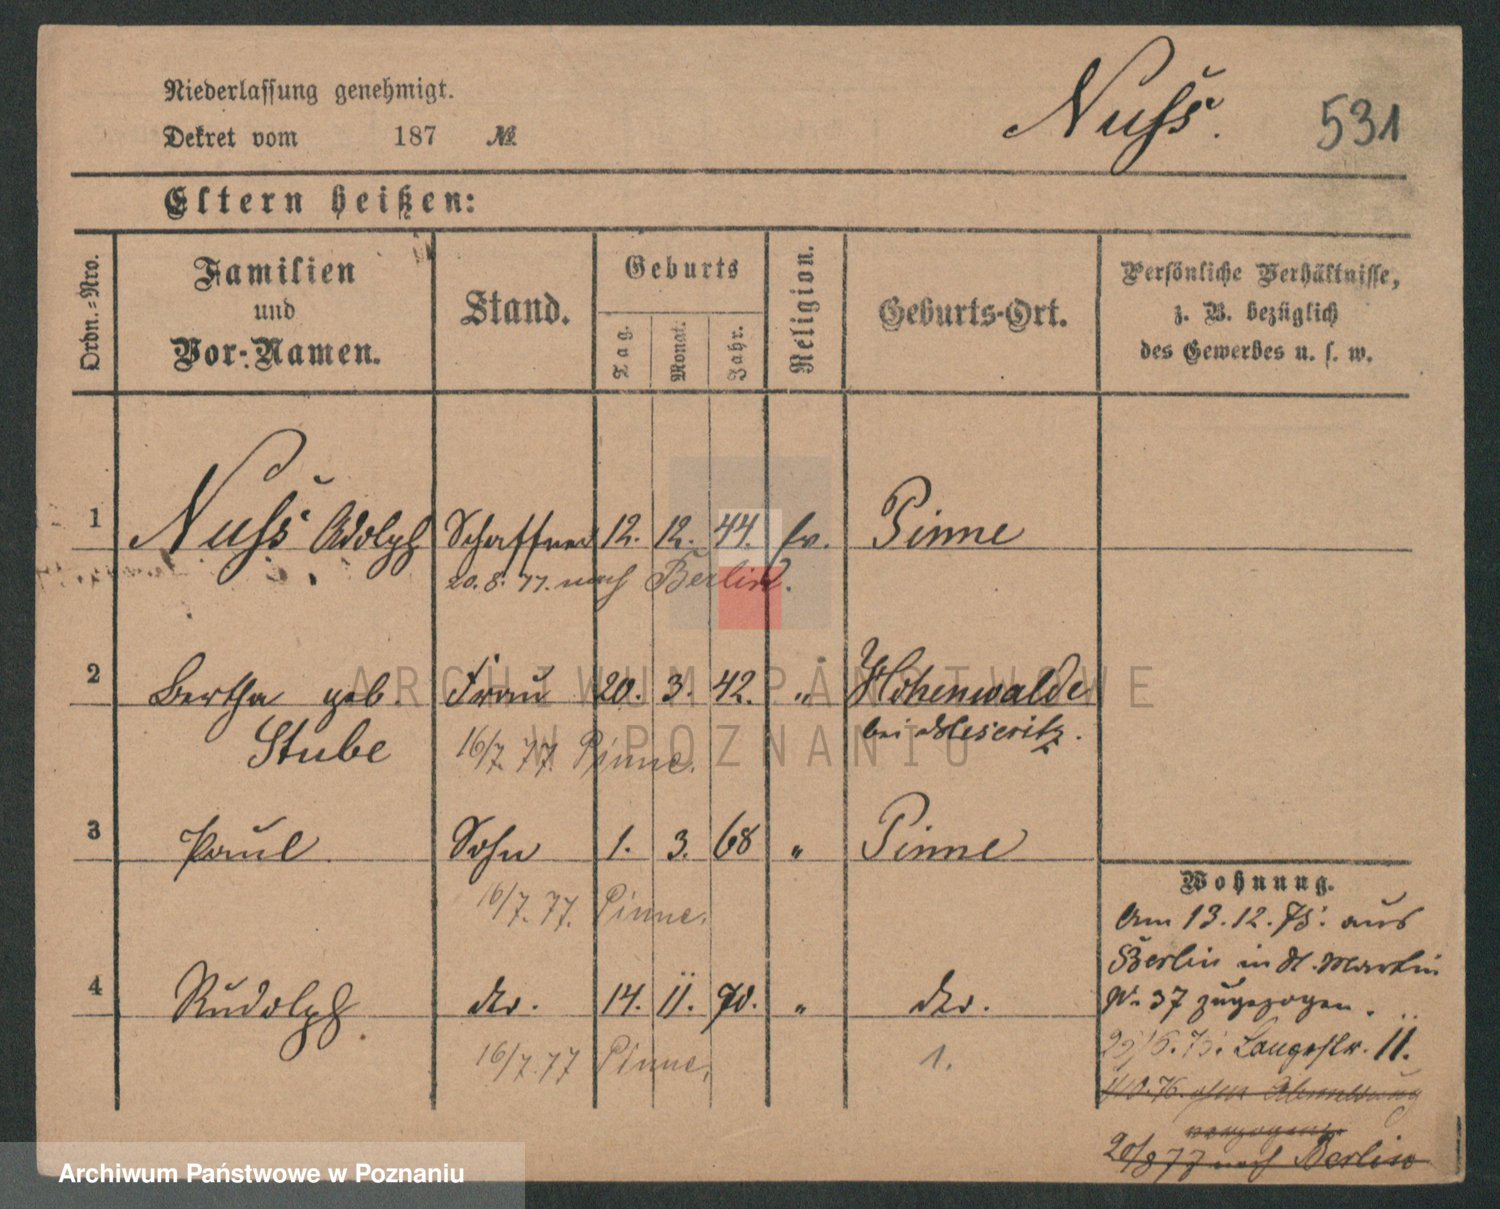 Niederlassung genehmigt.
Dekret vom 187 №
Nuss.
531
Eltern heißen:
Ordn.-Nro.
Familien
und
Vor-Namen.
Stand.
Geburts
Tag.
Monat.
Jahr.
Religion.
Geburts-Ort.
Persönliche Verhältnisse,
z. B. bezüglich
des Gewerbes u. s. w.
1 Nuss Adolph Schaffner 12. 12. 44. ev. Pinne
20. 8. 77. nach Berlin.
2 Bertha geb. Frau 20. 3. 42. " Hohenwalde
Stube bei Meseritz.
16/7. 77. Pinne.
3 Paul Sohn 1. 3. 68 " Pinne
16/7. 77. Pinne.
4 Rudolph dto. 14. 11. 70. " dto.
16/7. 77 Pinne.
1.
Wohnung.
Am 13. 12. 75. aus
Berlin in St. Martin
N. 37 zugezogen.
Langestr. 11.
ohne Abmeldung
verzogen.
20/8 77 nach Berlin
ARCHIWUM PAŃSTWOWE
W POZNANIU
Archiwum Państwowe w Poznaniu